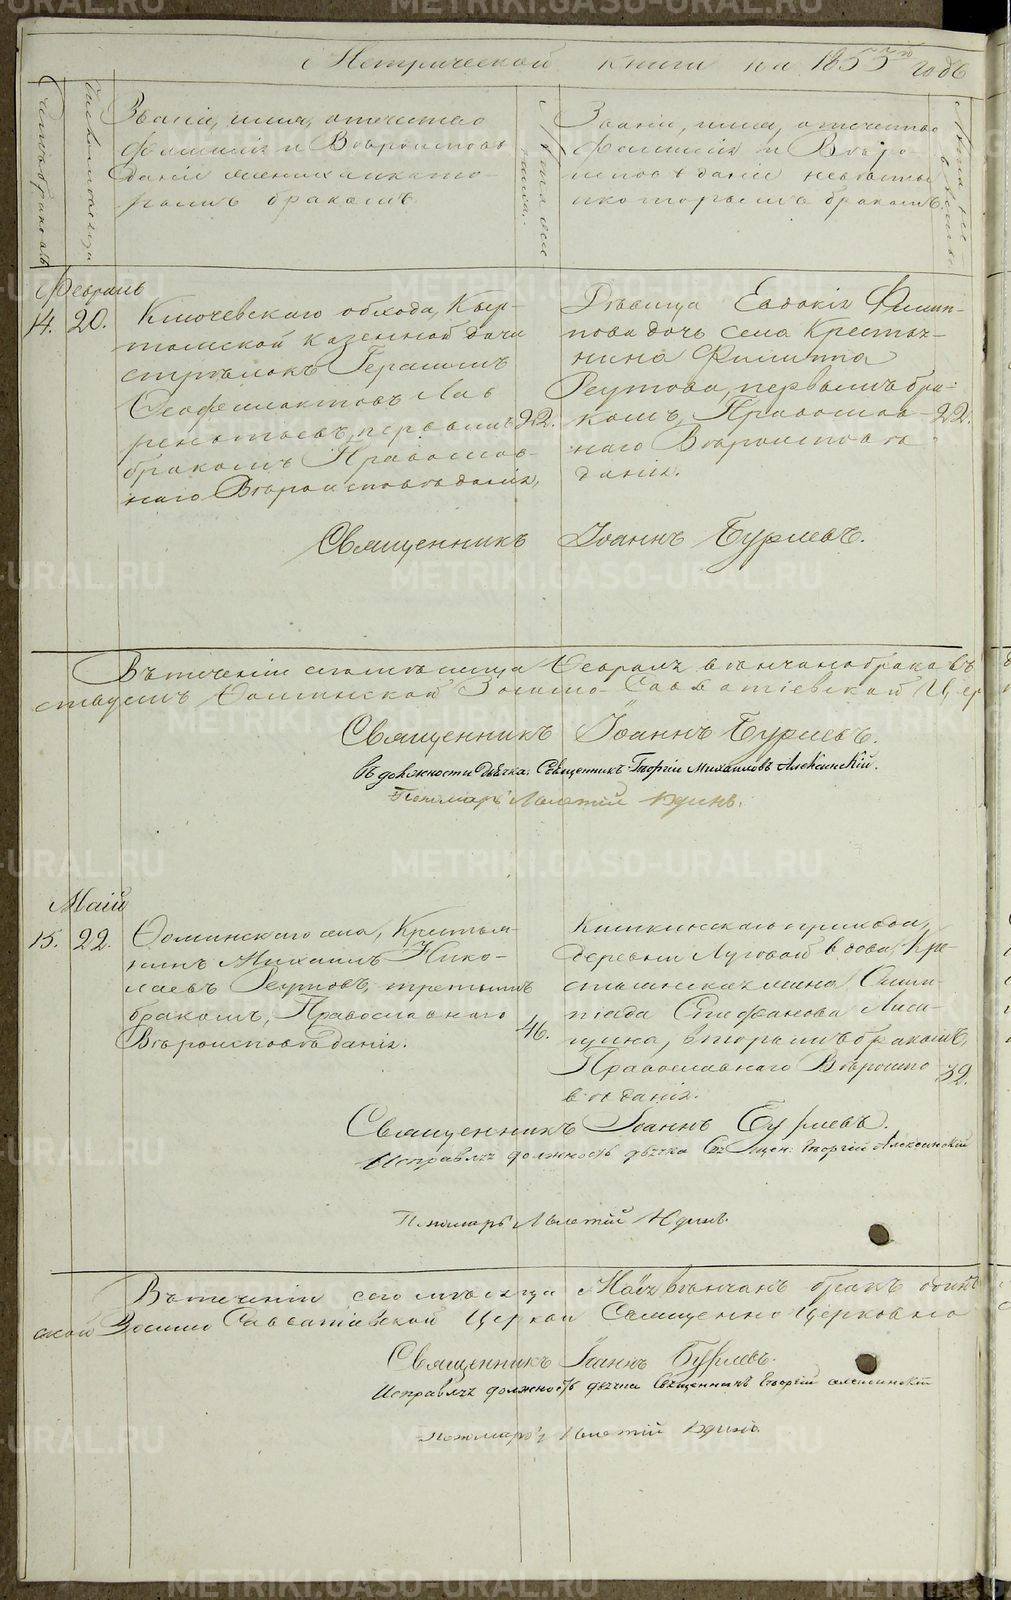 Метрической книги на 1853го годъ
Счетъ браковъ
Званіе, имя, отечество
фамилія и Вѣроисповѣ
даніе жениха и кото-
рымъ бракомъ.
Званіе, имя, отечество
фамилія и Вѣро-
исповѣданіе невѣсты
и которымъ бракомъ.
Февраль
14. 20. Ключевскаго обхода, Кыр-
томской казенной дачи
стрѣлокъ Герасимъ
Феофилактовъ Лав
рентьевъ, первымъ 22.
бракомъ Православ-
наго Вѣроисповѣданія,
Дѣвица Евдокія Филип-
пова дочь села Крестья-
нина Филиппа
Реутова, первымъ бра-
комъ, Православ- 22.
наго Вѣроисповѣ
данія.
Священникъ Іоаннъ Бурлевъ.
Въ теченіи сего мѣсяца Февраля вѣнчано брака
Фоминской Зосимо-Савватіевской Цер
Священникъ Іоаннъ Бурлевъ.
въ должности Дьячка: Священникъ Георгій Михаиловъ Алексинскій.
Пономарь Мелетій Юдинъ.
Маій
15. 22. Фоминскаго села, Крестья-
нинъ Михаилъ Нико-
лаевъ Реутовъ, третьимъ
бракомъ, Православнаго 46.
Вѣроисповѣданія.
Кишкинскаго прихода,
деревни Луговой вдова, Кре-
стьянская жена Олим-
піада Стефанова Лиси-
цина, вторымъ бракомъ,
Православнаго Вѣроиспо 32.
вѣданія.
Священникъ Іоаннъ Бурлевъ.
Исправляя должность дьячка Священ: Георгій Алексинскій
Пономарь Мелетій Юдинъ.
Въ теченіи сего мѣсяца Маія вѣнчанъ бракъ одинъ
ской Зосимо Савватіевской Церкви Священно Церковно
Священникъ Іоаннъ Бурлевъ.
Исправляя должность дьячка Священникъ Георгій Алексинскій
Пономарь Мелетій Юдинъ.
METRIKI.GASO-URAL.RU